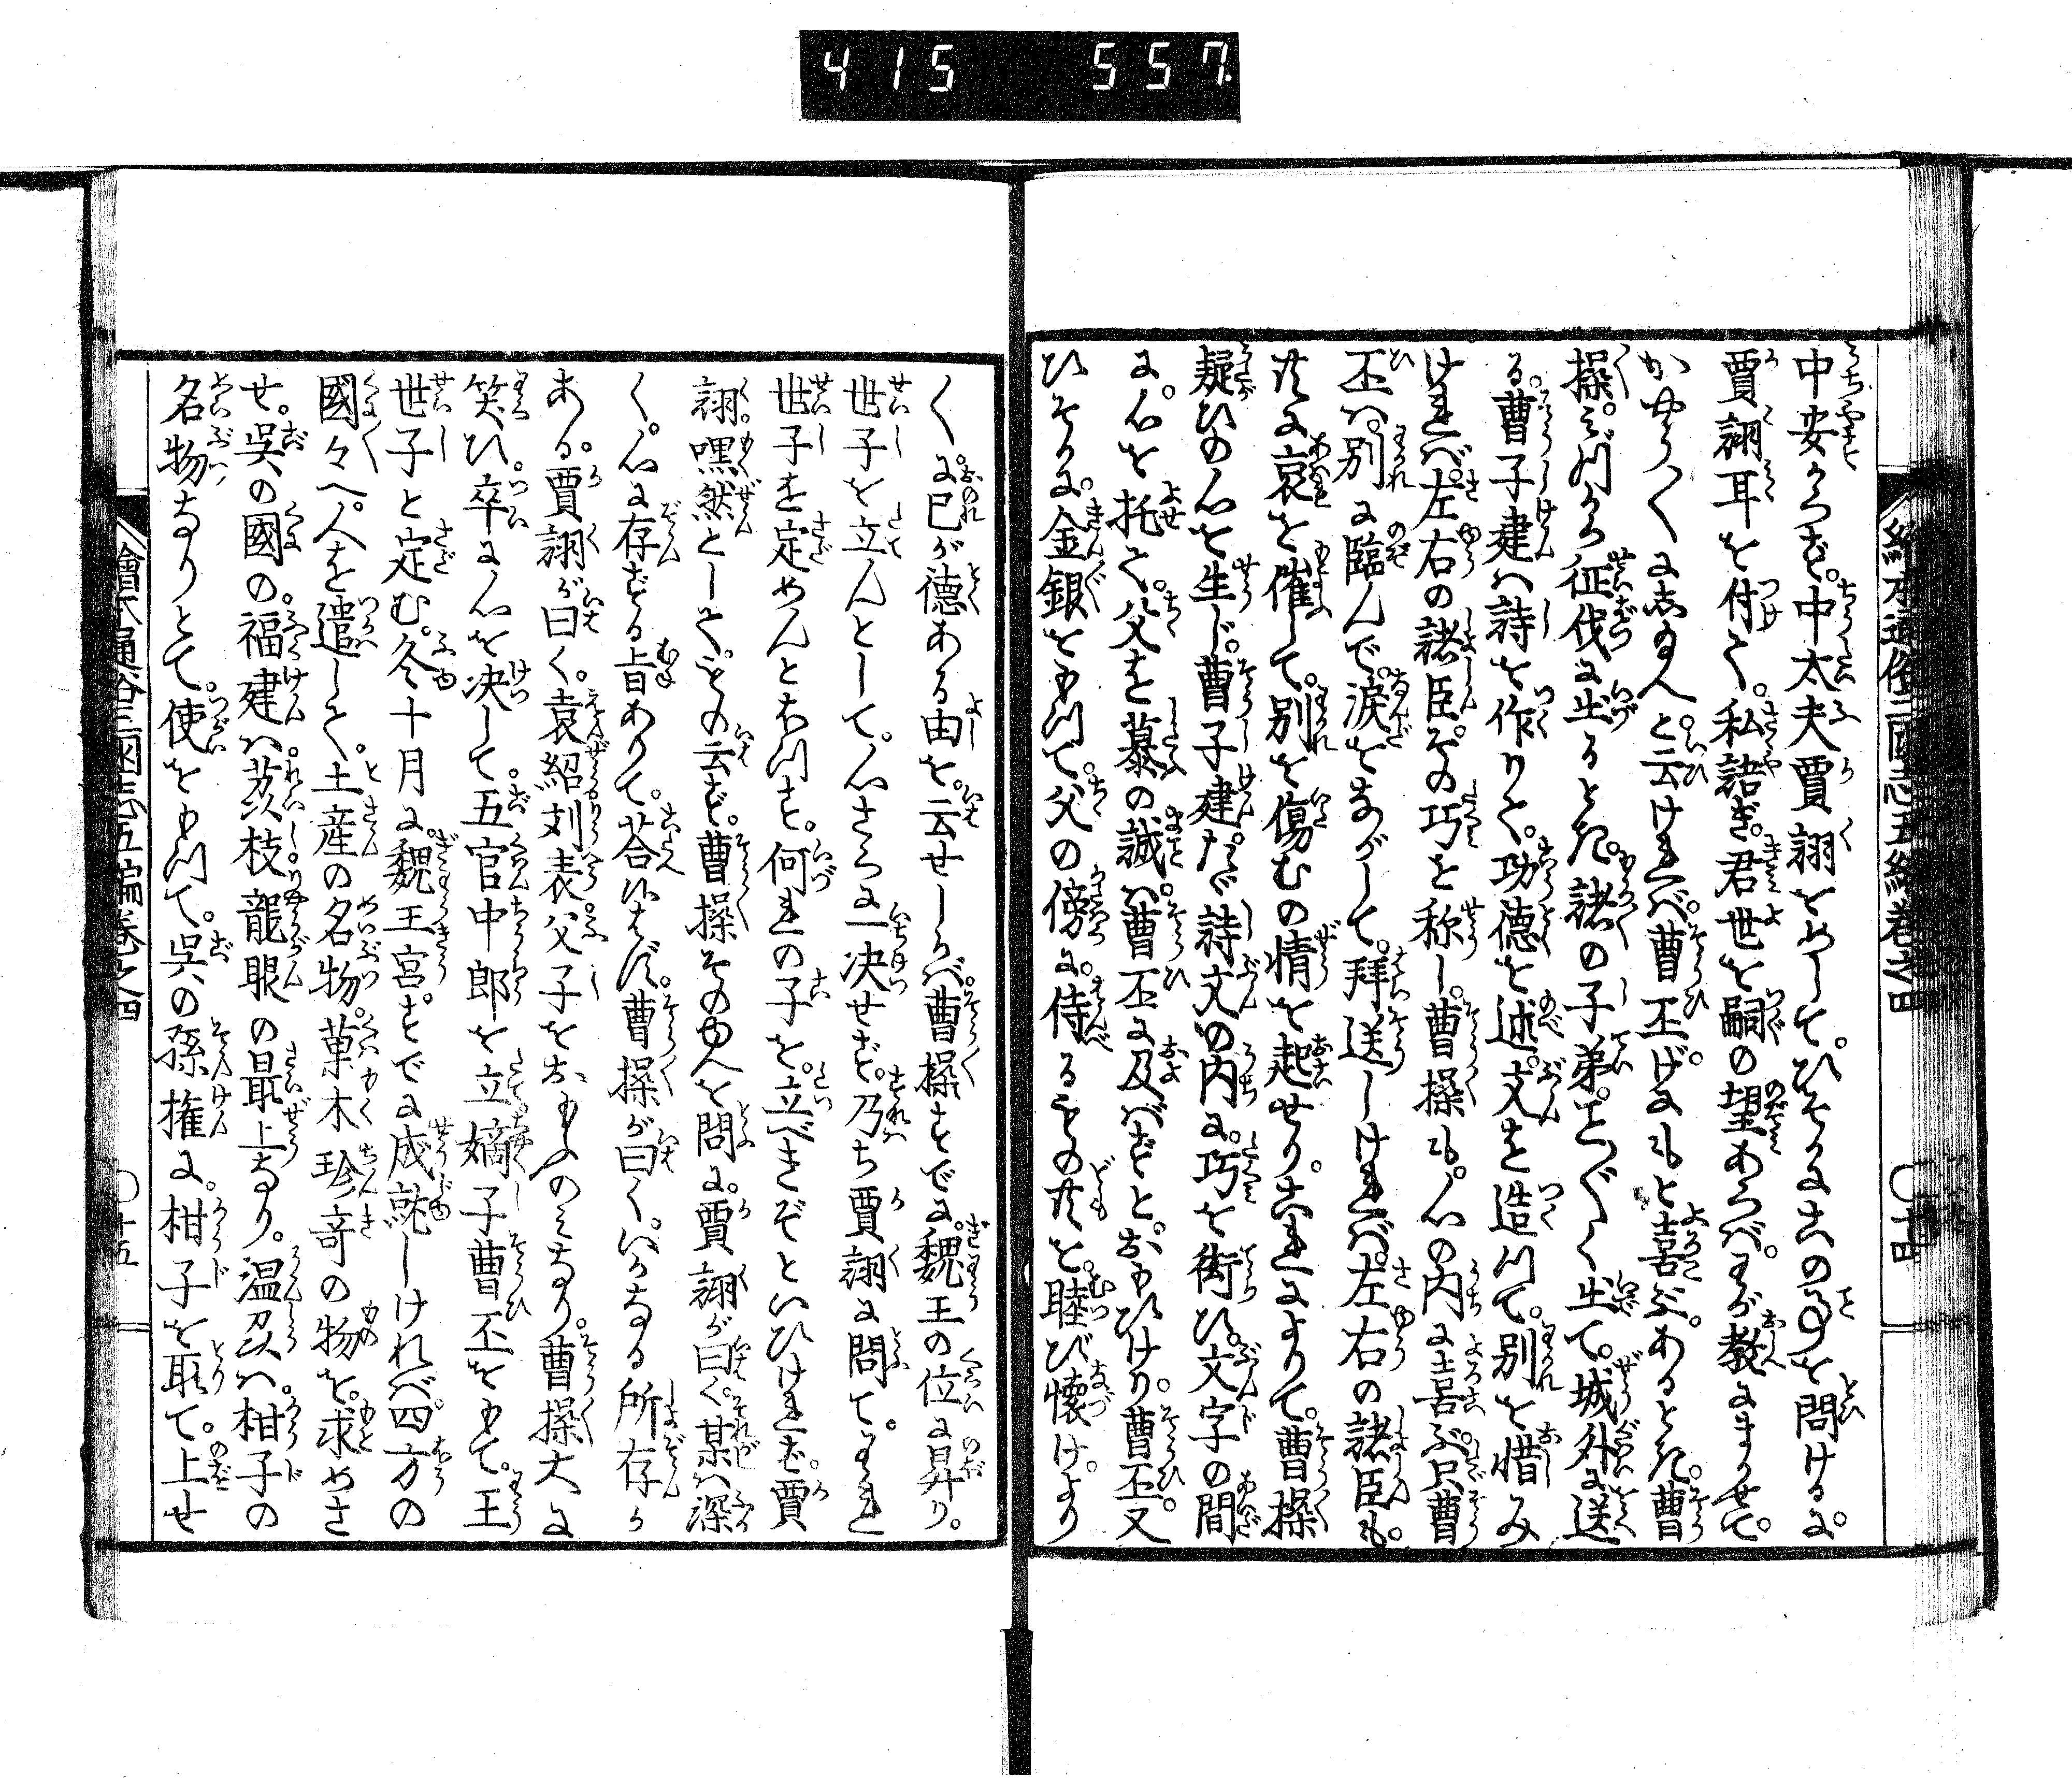 415 557
繪本通俗三國志五編卷之四 ○十四
中安からず。中太夫賈詡をめして。ひそかに此の事を問けるに。
賈詡耳を付て。私語ぎ。君世を嗣の望あらば。わが教にまかせて。
かやう〱にしたまへと云ければ。曹丕げにもと喜ぶ。あるとき。曹
操みづから征伐に出るとき。諸の子弟。こと〲く出て。城外に送
る。曹子建は詩を作りて。功德を述。文を造つて。別を惜み
ければ。左右の諸臣。その巧を称し。曹操も。心の内に喜ぶ。只曹
丕は。別に臨んで。淚をながして。拜送しければ。左右の諸臣も。
共に哀を催して。別を傷むの情を起せり。これによりて。曹操
疑ひの心を生じ。曹子建たゞ詩文の内に。巧を衒ひ。文字の間
に。心を托て。父を慕の誠は。曹丕に及ばずと。おもひけり。曹丕。又
ひそかに。金銀をもつて。父の傍に。侍るもの共を。睦び懐け。より
く。に己が德ある由を。云せしかば。曹操すでに。魏王の位に昇り。
世子を立んとして。心さらに一决せず。乃ち賈詡に問て。われ
世子を定めんとおもつす。何れの子を。立べきぞといひければ。賈
詡。嘿然として。もの云ず。曹操そのゆへを問に。賈詡が曰く。某は深
く。心に存ずる旨ありて。荅候はず。曹操が曰く。いかなる所存か
ある。賈詡が曰く。袁紹刘表父子をおもふのみなり。曹操大に
笑ひ。卒に心を决して。五官中郎を立嫡子曹丕をもて。王
世子と定む。冬十月に。魏王宮。すでに成就しければ。四方の
國々へ。人を遣して。土産の名物。菓木珍奇の物を。求めさ
せ。吳の國の福建は。茘枝龍眼の最上なり。温刕は。柑子の
名物なりとて。使をもつて。吳の孫権に。柑子を取て。上せ
繪本通俗三國志五編卷之四 ○十五